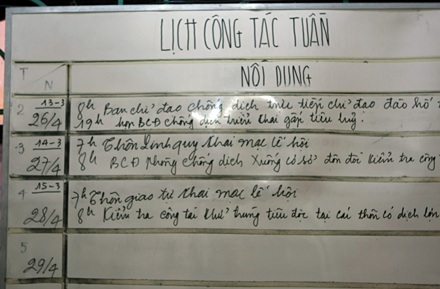 LỊCH CÔNG TÁC TUẦN
T
N
NÔI DUNG
2
13-3
26/4
8h Ban chỉ đạo chống dịch trực tiếp chỉ đạo đào hố
19h họp BCĐ chống dịch triển khai gấp tiêu huỷ
3
14-3
27/4
7h Thôn Linh quy khai mạc lễ hội
8h BCĐ phòng chống dịch xuống cơ sở đôn đốc kiểm tra công
4
15-3
28/4
7h Thôn giao tự khai mạc lễ hội
8h Kiểm tra công tác khử trùng tiêu độc tại các thôn có dịch lợn
5
29/4